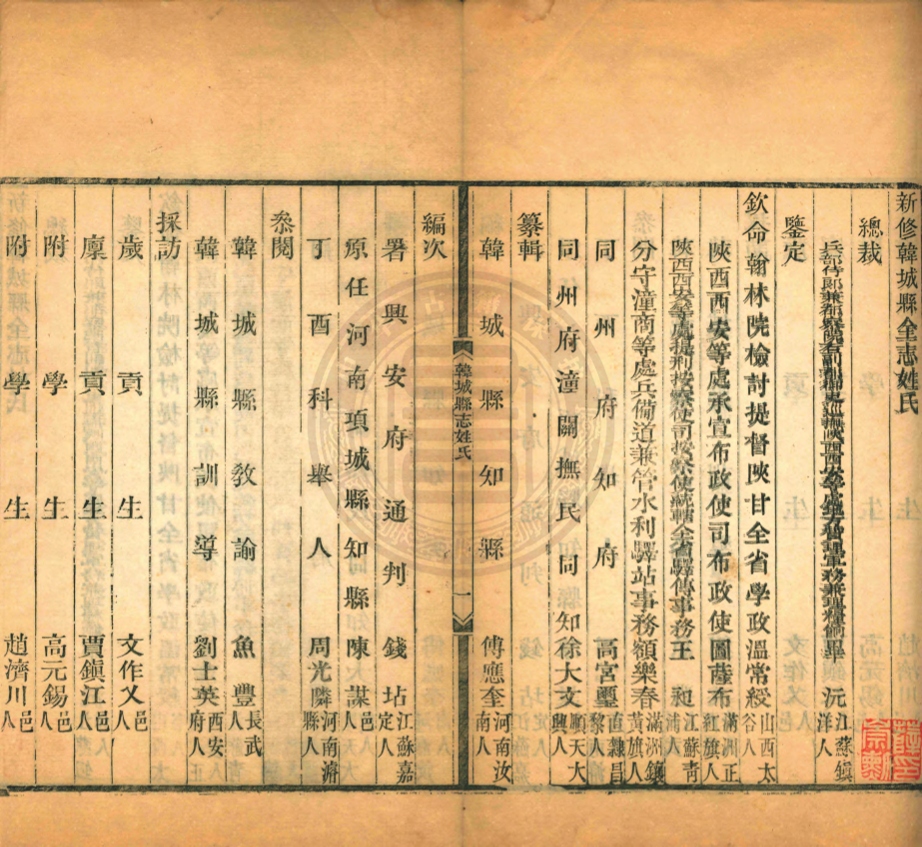 新修韓城縣全志姓氏
總裁
兵部侍郎兼都察院右副都御史巡撫陝西西安等處地方贊理軍務兼理糧餉畢 沅江蘇鎮洋人
鑒定
欽命翰林院檢討提督陝甘全省學政溫常綬山西太谷人
陝西西安等處承宣布政使司布政使圖薩布滿洲正紅旗人
陝西西安等處提刑按察使司按察使統轄全省驛傳事務王 昶江蘇青浦人
分守潼商等處兵備道兼管水利驛站事務額樂春滿洲鑲黃旗人
同州府知府 高宮璽直隸昌黎人
同州府潼關撫民同知徐大文順天大興人
纂輯
韓城縣知縣 傅應奎河南汝南人
韓城縣志姓氏 一
編次
署興安府通判 錢坫江蘇嘉定人
原任河南項城縣知縣 陳 謀邑人
丁酉科舉人 周光隣河南濬縣人
叅閱
韓城縣教諭 魚 豐長武人
韓城縣訓導 劉士英西安府人
採訪
歲貢生 文作乂邑人
廩貢生 賈鎮江邑人
附學生 高元錫邑人
附學生 趙濟川邑人